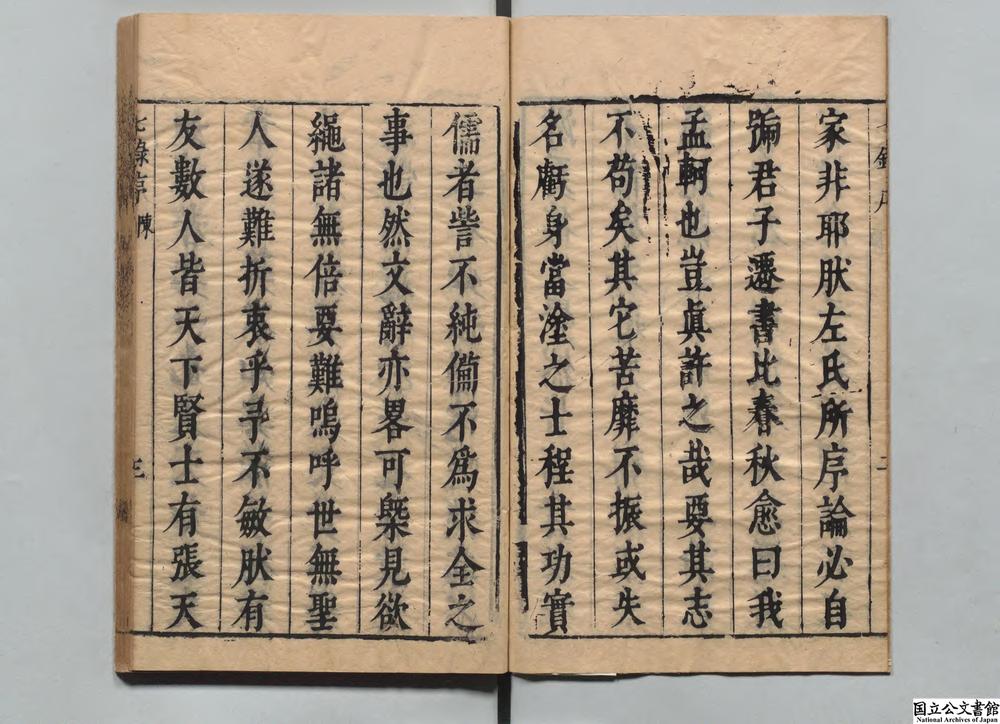 家非耶肰左氏所序論必自
踰君子遷書比春秋愈曰我
孟軻也豈眞許之哉要其志
不苟矣其它苦靡不振或失
名虧身當塗之士程其功實
儒者訾不純備不爲求全之
事也然文辭亦畧可槩見欲
繩諸無倍要難嗚呼世無聖
人遂難折衷乎予不敏肰有
友數人皆天下賢士有張天
七錄序 陳 三
国立公文書館
National Archives of Japan